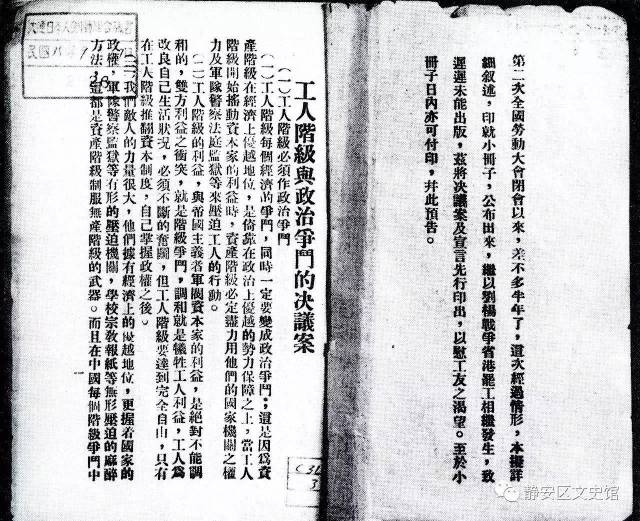 第二次全國勞動大會閉會以來，差不多半年了，這次經過情形，本擬詳
細叙述，印就小冊子，公布出來，繼以劉楊戰爭省港罷工相繼發生，致
遲遲未能出版，茲將決議案及宣言先行印出，以慰工友之渴望。至於小
冊子日內亦可付印，幷此預告。
工人階級與政治爭鬥的决議案
（一）工人階級必須作政治爭鬥
（1）工人階級每個經濟的爭鬥，同時一定要變成政治爭鬥；這是因爲資
產階級在經濟上優越地位，是倚靠在政治上優越的勢力保障之上，當工人
階級開始搖動資本家的利益時，資產階級必定盡力用他們的國家機關之權
力及軍隊警察法庭監獄等來壓迫工人的行動。
（二）工人階級的利益，與帝國主義者軍閥資本家的利益，是絕對不能調
和的，雙方利益之衝突，就是階級爭鬥，調和就是犧牲工人利益，工人爲
改良自己生活狀况，必須不斷的奮鬭，但工人階級要達到完全自由，只有
在工人階級推翻資本制度，自己掌握政權之後。
（三）我們敵人的力量很大，他們據有經濟上的優越地位，更握着國家的
政權，軍隊警察監獄等有形的壓迫機關，學校宗教報紙等無形壓迫的麻醉
方法，這都是資產階級制服無產階級的武器。而且在中國每個階級爭鬥中
一
静安区文史馆